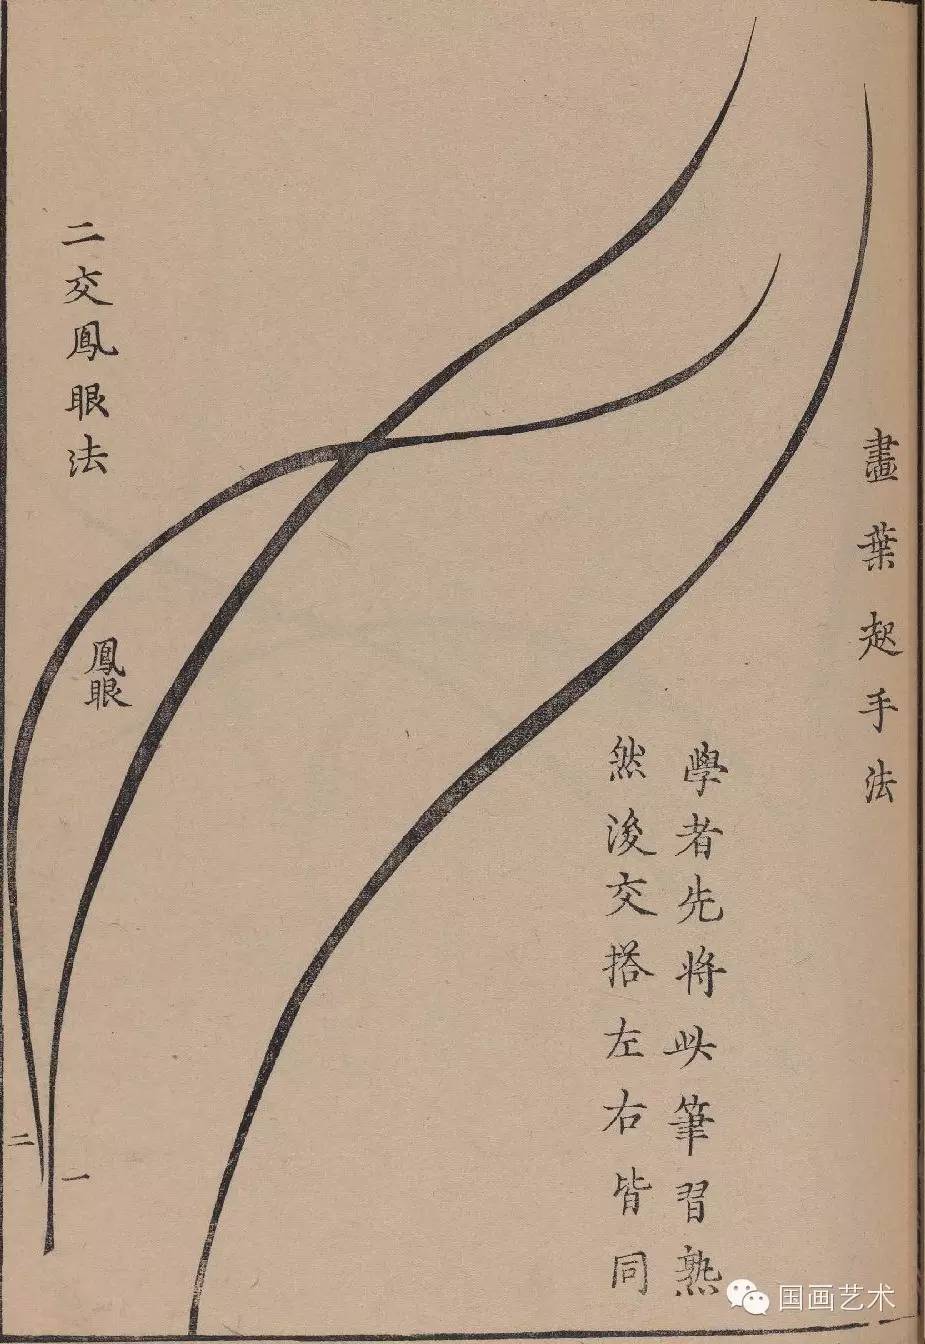 畫葉起手法
學者先將此筆習熟
然後交搭左右皆同
二交鳳眼法
鳳眼
一
二
国画艺术